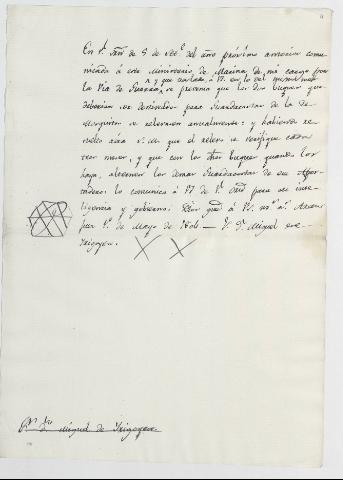 En Rl. Orn. de 5 de Dec.e del año próximo anterior comu-
nicada á este Ministerio de Marina de mi cargo por
la Via de se previno que los dos buques que
deberian ser destinados para Guardacostas de la de
se relevasen anualmente: y habiendo re-
suelto ahora S. M. que el relevo se verifique cada
tres meses; y que con los otros buques quando los
haya, alternen los demas Guardacostas de ese Aposta-
dero: lo comunico á V. de Rl. Orn. para su inte-
ligencia y gobierno. Dios gue. á V. ms. as. Aran-
juez 1.o de Mayo de 1804 — Sr. Dn. Miguel de
Irigoyen.
Sr. Dn. Miguel de Irigoyen